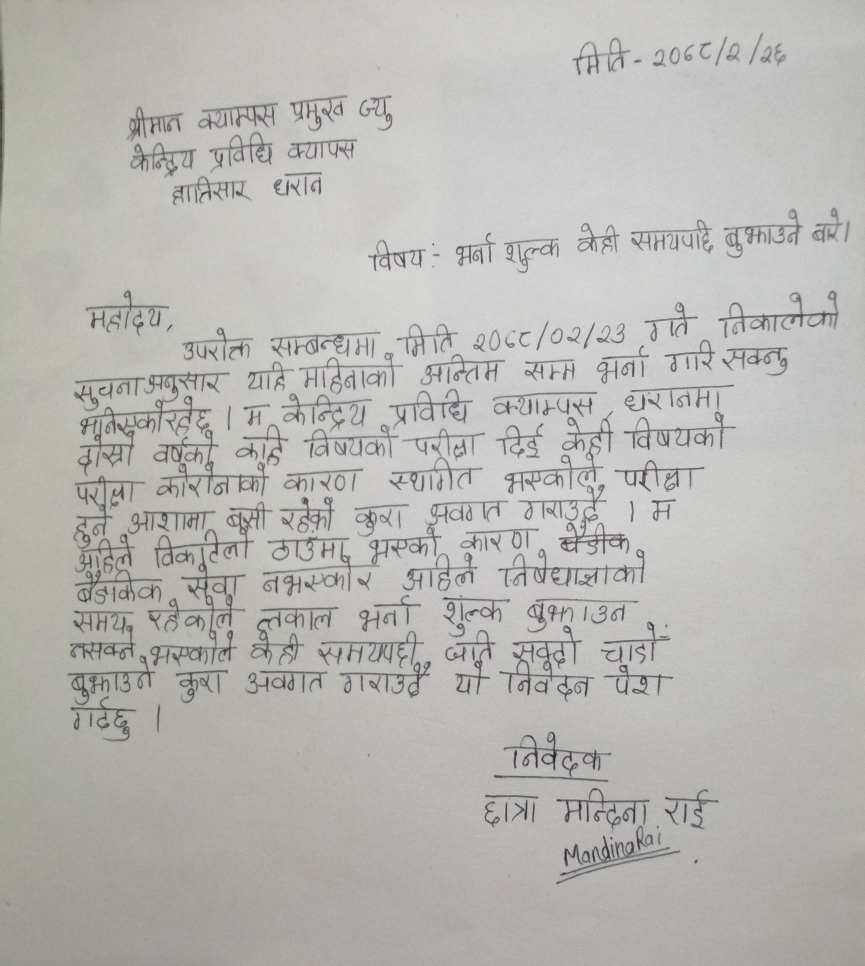 मिति - २०७८/२/२६
श्रीमान क्याम्पस प्रमुख ज्यु
केन्द्रिय प्रविधि क्यापस
हात्तिसार धरान
विषय :- भर्ना शुल्क केही समयपछि बुझाउने बारे।
महोदय,
उपरोक्त सम्बन्धमा मिति २०७८/०२/२३ गते निकालेको
सुचना अनुसार यहि महिनाको अन्तिम सम्म भर्ना गरि सक्नु
भनिएकोरहेछ । म केन्द्रिय प्रविधि क्याम्पस धरानमा
दोस्रो वर्षको केहि विषयको परीक्षा दिई केही विषयको
परीक्षा कोरोनाको कारण स्थगित भएकोले परीक्षा
हुने आशामा बसी रहेको कुरा अवगत गराउदै । म
अहिले विकटिलो ठाउँमा भएको कारण
बैङकिक सेवा नभएकोर अहिले निषेधाज्ञाको
समय रहेकोले तत्काल भर्ना शुल्क बुझाउन
नसक्ने भएकोले केही समयपछी जति सक्दो चाडो
बुझाउने कुरा अवगत गराउदै यो निवेदन पेश
गर्दछु ।
निवेदक
छात्रा मन्दिना राई
MandinaRai